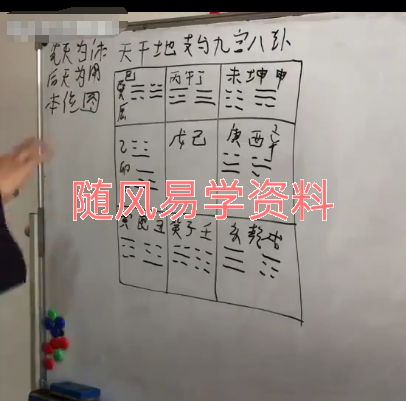 天干地支与九宫八卦
先天为体
后天为用
本位图
巽 巳
丙午丁
未坤申
乙
卯
戊己
庚酉辛
随风易学资料
艮丑
癸子壬
亥乾戌